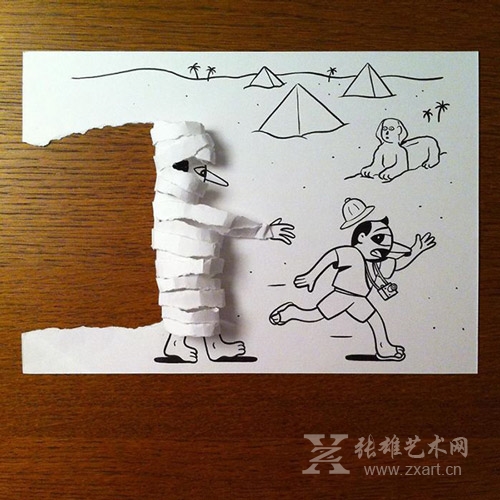 张雄艺术网
www.zxart.cn